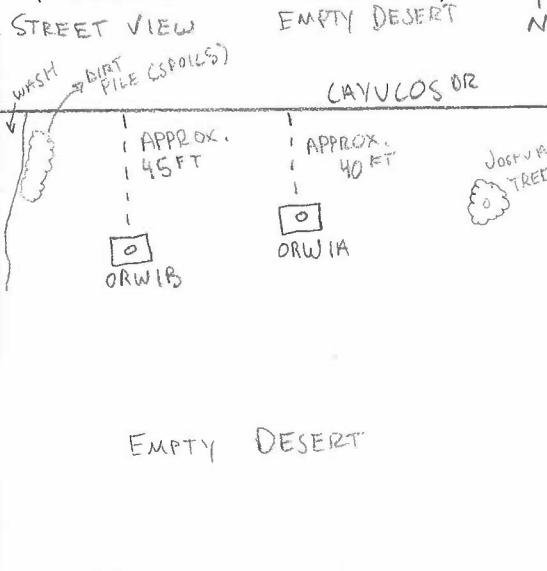 STREET VIEW
EMPTY DESERT
N
WASH
DIRT
PILE (SPOILS)
CAYUCOS DR
APPROX.
45 FT
APPROX.
40 FT
JOSHUA
TREE
ORW1B
ORW1A
EMPTY DESERT